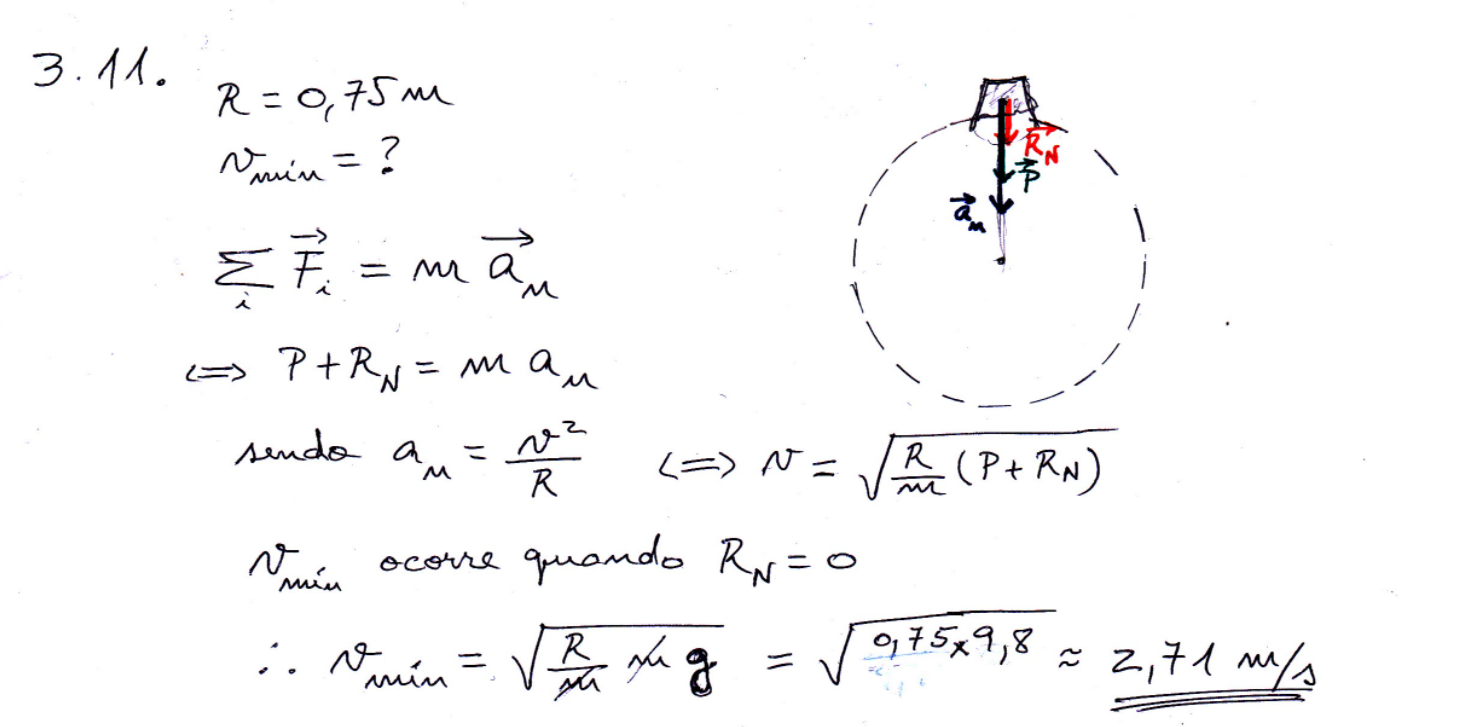 3.11.
R = 0,75 m
v_mín = ?
∑_i F⃗_i = m a⃗_n
⇔ P + R_N = m a_n
sendo a_n = v²/R ⇔ v = √(R/m (P + R_N))
v_mín ocorre quando R_N = 0
∴ v_mín = √(R/m m g) = √(0,75 x 9,8) ≈ 2,71 m/s
R⃗_N
P⃗
a⃗_n